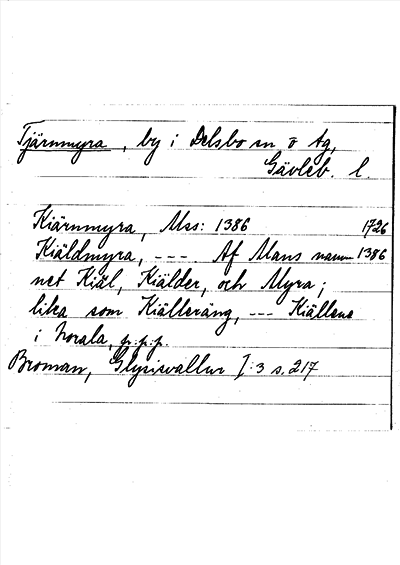 Tjärnmyra, by i Delsbo sn o tg,
Gävleb. l.
Kiärnmyra, Mss: 1386 1726
Kiäldmyra, --- Af Mans namn- 1386
net Kiäl, Kiälder, och Myra;
lika som Kiälleräng, --- Kiällene
i Norala, p.p.p.
Broman, Glysisvallur I:3 s. 217